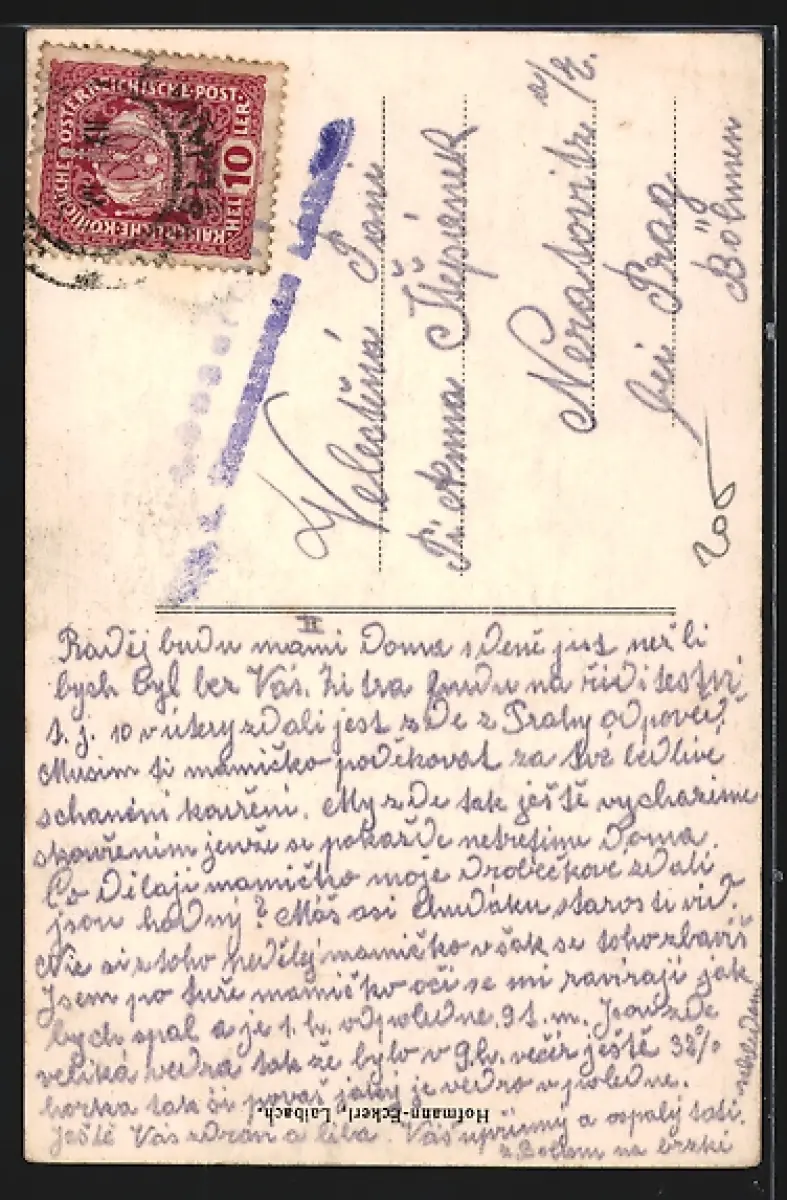 KAISERLICHE KÖNIGLICHE ÖSTERREICHISCHE POST
HELLER 10
Velectěná Paní
Štěpánek
Neratovitz a/E.
bei Prag
Böhmen
205
II
Raděj budu mami doma s deně jist nežli
bych byl bez Vás. Zítra budu na ředitelství
t. j. 10 v úterý zdali jest zde z Prahy odpověď.
Musím ti mamičko poděkovat za tvé
schanění kouření. My zde tak ještě vycházíme
s kouřením jenže se pokaždé netrefíme doma.
Co dělají mamičko moje drobečkové zdali
jsou hodný? Máš asi chuďáku starosti viď.
Nic si z toho nedělej mamičko však se toho zbavíš
Jsem po tuře mamičko oči se mi zavírají jak
bych spal a je 1. h. odpoledne. 9 t. m. Jsou zde
veliká vedra tak že bylo v 9 h. večír ještě 32%
horka tak si považ jaký je vedro v poledne.
Ještě Vás zdraví a líbá Váš upřímný a ospalý táti.
z Bohem na brzké
shledání
Hofmann-Eckerl, Laibach.